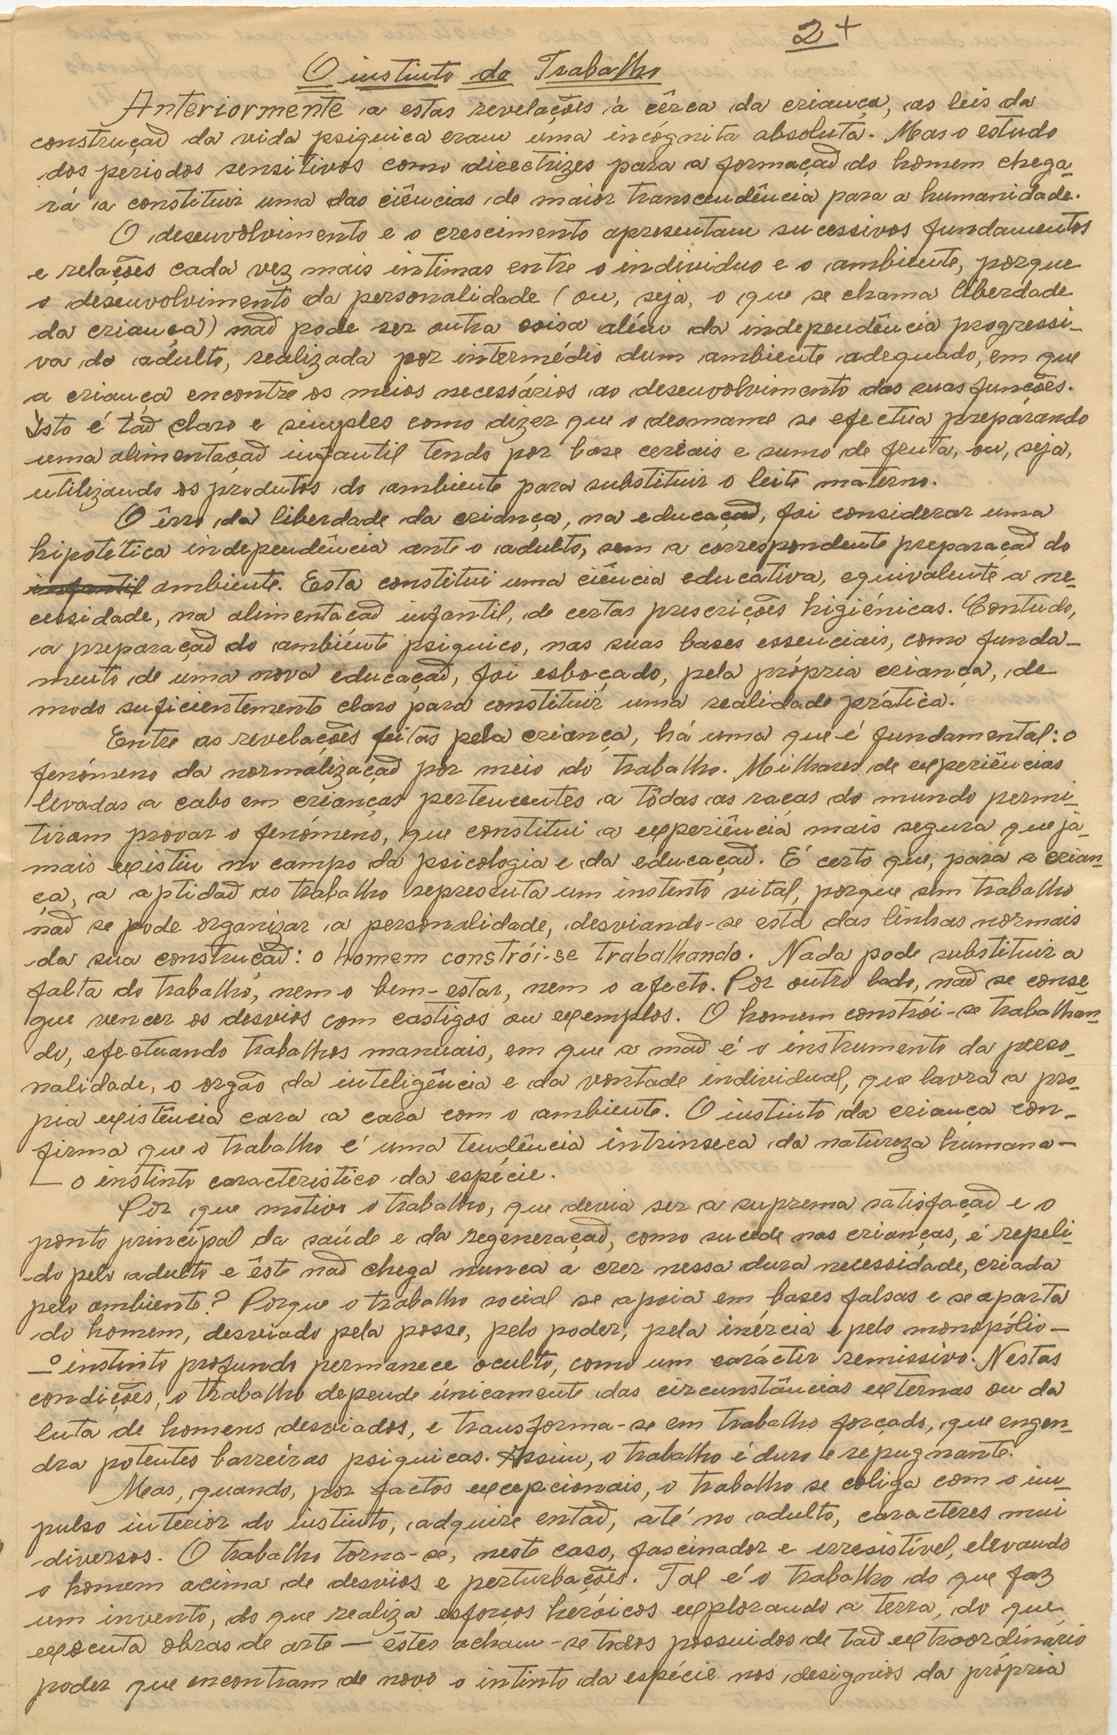 2+
O instinto do Trabalho
Anteriormente a estas revelações à cêrca da criança, as leis da
construção da vida psiquica eram uma incógnita absoluta. Mas o estudo
dos periodos sensitivos como directrizes para a formação do homem chega-
rá a constituir uma das ciências de maior transcendência para a humanidade.
O desenvolvimento e o crescimento apresentam sucessivos fundamentos
e relações cada vez mais intimas entre o individuo e o ambiente, porque
o desenvolvimento da personalidade (ou, seja, o que se chama liberdade
da criança) não pode ser outra coisa além da independência progressi-
va do adulto, realizada por intermédio dum ambiente adequado, em que
a criança encontre os meios necessários ao desenvolvimento das suas funções.
Isto é tão claro e simples como dizer que o desmame se efectua preparando
uma alimentação infantil tendo por base cereais e sumo de fruta, ou, seja,
utilizando os produtos do ambiente para substituir o leite materno.
O êrro da liberdade da criança, na educação, foi considerar uma
hipotetica independência ante o adulto, sem a correspondente preparação do
infantil ambiente. Esta constitui uma ciência educativa, equivalente a ne-
cessidade, na alimentação infantil, de certas prescrições higiénicas. Contudo,
a preparação do ambiente psiquico, nas suas bases essenciais, como funda-
mento de uma nova educação, foi esboçado, pela própria criança, de
modo suficientemente claro para constituir uma realidade prática.
Entre as revelações feitas pela criança, há uma que é fundamental: o
fenómeno da normalização por meio do trabalho. Milhares de experiências
levadas a cabo em crianças pertencentes a tôdas as raças do mundo permi-
tiram provar o fenómeno, que constitui a experiência mais segura que já-
mais existiu no campo da psicologia e da educação. É certo que, para a crian-
ça, a aptidão ao trabalho representa um instinto vital, porque sem trabalho
não se pode organizar a personalidade, desviando-se esta das linhas normais
da sua construção: o homem constrói-se trabalhando. Nada pode substituir a
falta do trabalho, nem o bem-estar, nem o afecto. Por outro lado, não se conse-
gue vencer os desvios com castigos ou exemplos. O homem constrói-se trabalhan-
do, efectuando trabalhos manuais, em que a mão é o instrumento da perso-
nalidade, o orgão da inteligência e da vontade individual, que lavra a pro-
pia existência cara a cara com o ambiente. O instinto da criança con-
firma que o trabalho é uma tendência intrinseca da natureza humana—
— o instinto caracteristico da espécie.
Por que motivo o trabalho, que devia ser a suprema satisfação e o
ponto principal da saúde e da regeneração, como sucede nas crianças, é repeli-
do pelo adulto e êste não chega nunca a crer nessa dura necessidade, criada
pelo ambiente? Porque o trabalho social se apoia em bases falsas e se aparta
do homem, desviado pela posse, pelo poder, pela inércia e pelo monopólio—
— o instinto profundo permanece oculto, como um carácter remissivo. Nestas
condições, o trabalho depende únicamente das circunstâncias externas ou da
luta de homens desviados, e transforma-se em trabalho forçado, que engen-
dra potentes barreiras psiquicas. Assim, o trabalho é duro e repugnante.
Mas, quando, por factos excepcionais, o trabalho se coliga com o im-
pulso interior do instinto, adquire então, até no adulto, caracteres mui
diversos. O trabalho torna-se, neste caso, fascinador e irresistível, elevando
o homem acima de desvios e perturbações. Tal é o trabalho do que faz
um invento, do que realiza esforços heróicos explorando a terra, do que
executa obras de arte — êstes acham-se todos possuidos de tão extraordinário
poder que encontram de novo o intinto da espécie nos designios da própria